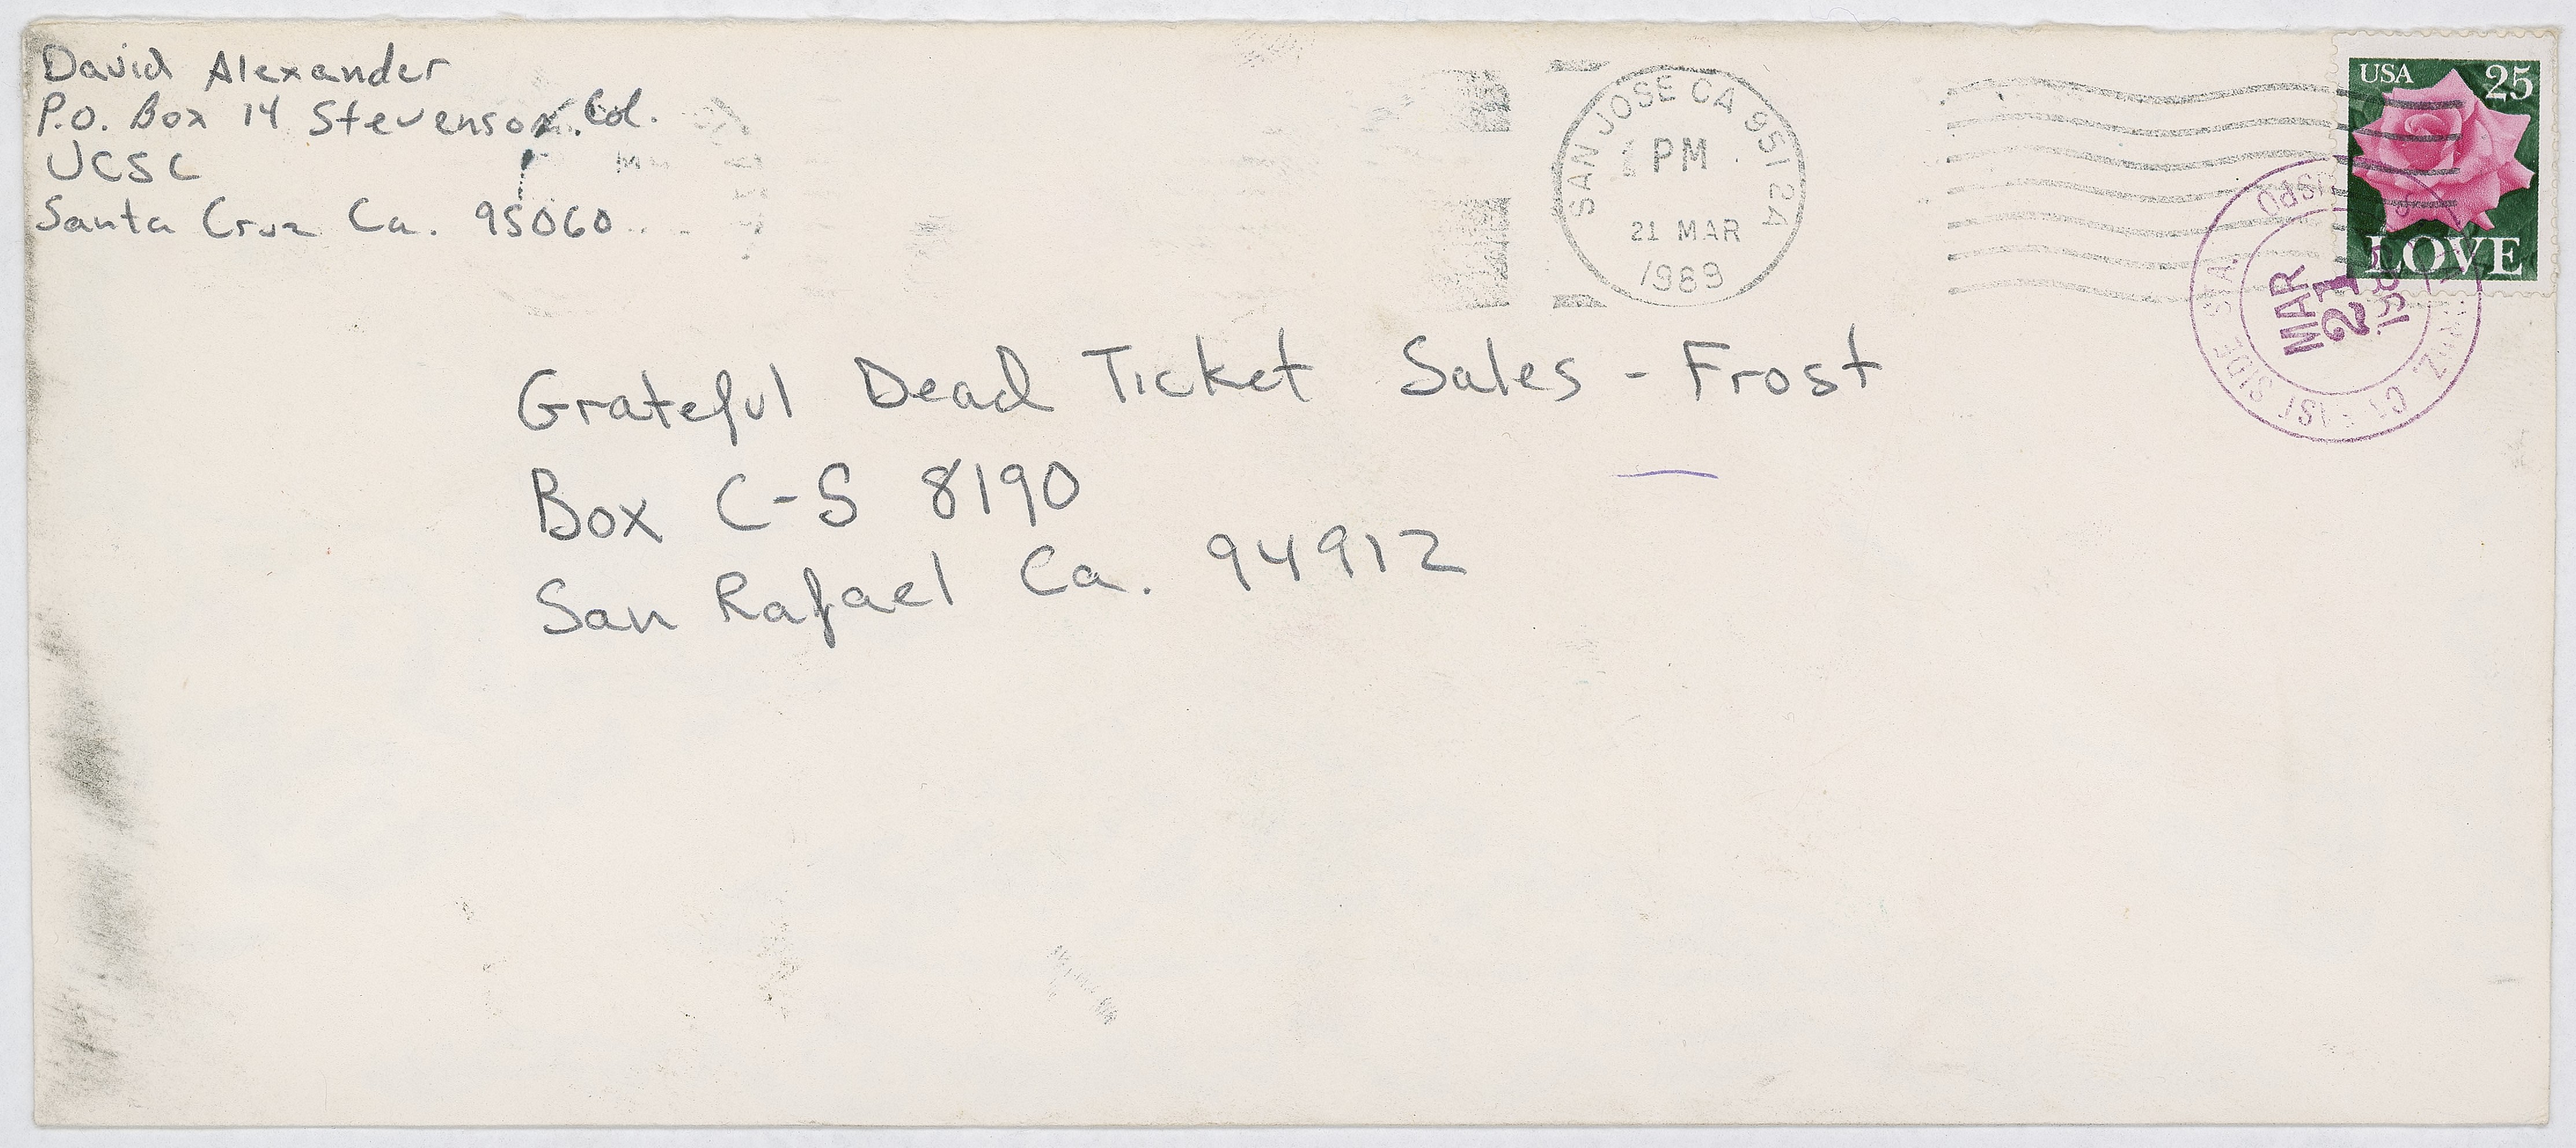 David Alexander
P.O. Box 14 Stevenson Col.
UCSC
Santa Cruz Ca. 95060
SAN JOSE CA 951 24
PM
21 MAR
1989
USA 25
LOVE
MAR
21
EAST SIDE STA.
USPO
Grateful Dead Ticket Sales - Frost
Box C-S 8190
San Rafael Ca. 94912